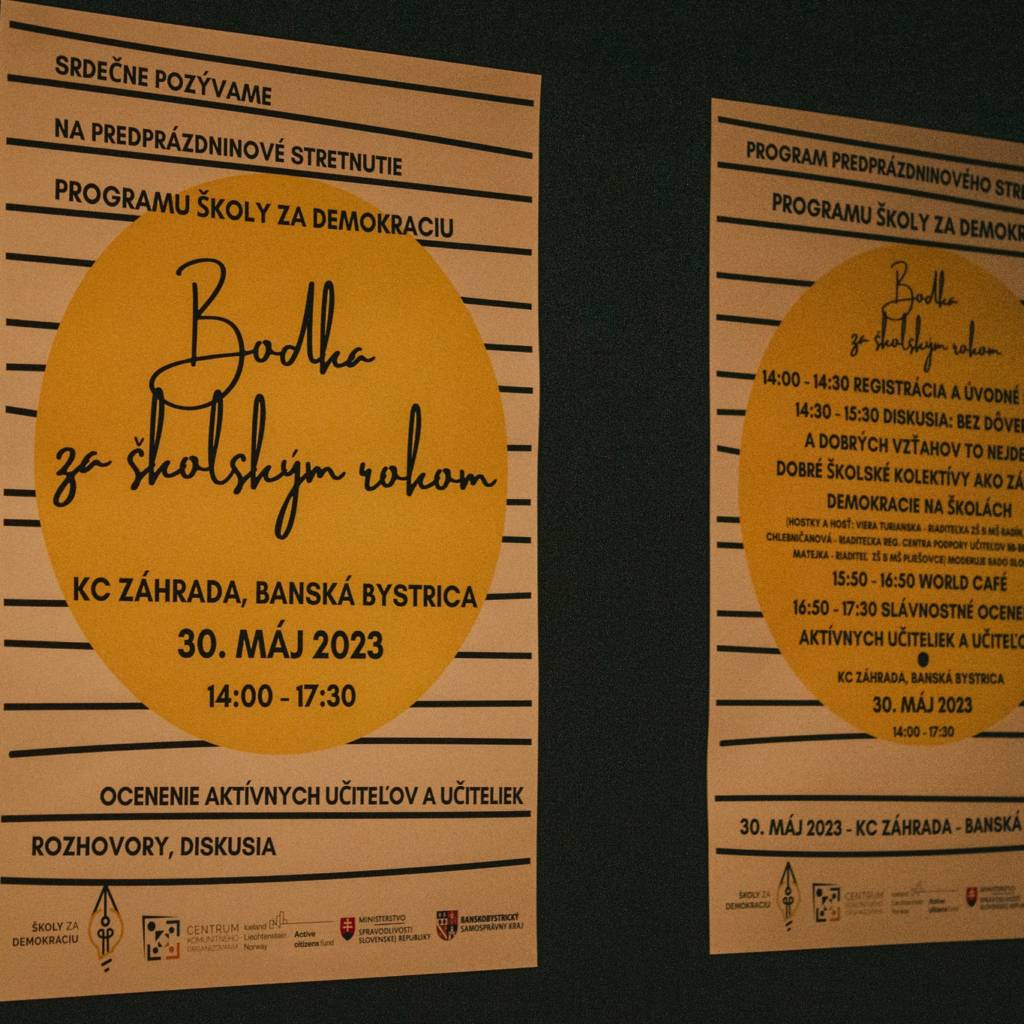 SRDEČNE POZÝVAME
NA PREDPRÁZDNINOVÉ STRETNUTIE
PROGRAMU ŠKOLY ZA DEMOKRACIU
Bodka
za školským rokom
KC ZÁHRADA, BANSKÁ BYSTRICA
30. MÁJ 2023
14:00 - 17:30
OCENENIE AKTÍVNYCH UČITEĽOV A UČITELIEK
ROZHOVORY, DISKUSIA
ŠKOLY ZA
DEMOKRACIU
CENTRUM
KOMUNITNÉHO
ORGANIZOVANIA
Iceland
Liechtenstein
Norway
Active
citizens fund
MINISTERSTVO
SPRAVODLIVOSTI
SLOVENSKEJ REPUBLIKY
BANSKOBYSTRICKÝ
SAMOSPRÁVNY KRAJ
PROGRAM PREDPRÁZDNINOVÉHO
PROGRAMU ŠKOLY ZA
Bodka
za školským rokom
14:00 - 14:30 REGISTRÁCIA A ÚVODNÉ
14:30 - 15:30 DISKUSIA: BEZ
A DOBRÝCH VZŤAHOV TO NEJDE
DOBRÉ ŠKOLSKÉ KOLEKTÍVY AKO
DEMOKRACIE NA ŠKOLÁCH
(HOSTKY A HOSŤ: VIERA TURIANSKA - RIADITEĽKA ZŠ S MŠ
CHLEBNIČANOVÁ - RIADITEĽKA REG. CENTRA PODPORY UČITEĽOV
MATEJKA - RIADITEĽ ZŠ S MŠ PLIEŠOVCE) MODERUJE
15:50 - 16:50 WORLD CAFÉ
16:50 - 17:30 SLÁVNOSTNÉ
AKTÍVNYCH UČITELIEK A
KC ZÁHRADA, BANSKÁ BYSTRICA
30. MÁJ 2023
14:00 - 17:30
30. MÁJ 2023 - KC ZÁHRADA - BANSKÁ
ŠKOLY ZA
DEMOKRACIU
CENTRUM
KOMUNITNÉHO
ORGANIZOVANIA
Iceland
Liechtenstein
Norway
Active
citizens fund
MINISTERSTVO
SPRAVODLIVOSTI
SLOVENSKEJ REPUBLIKY